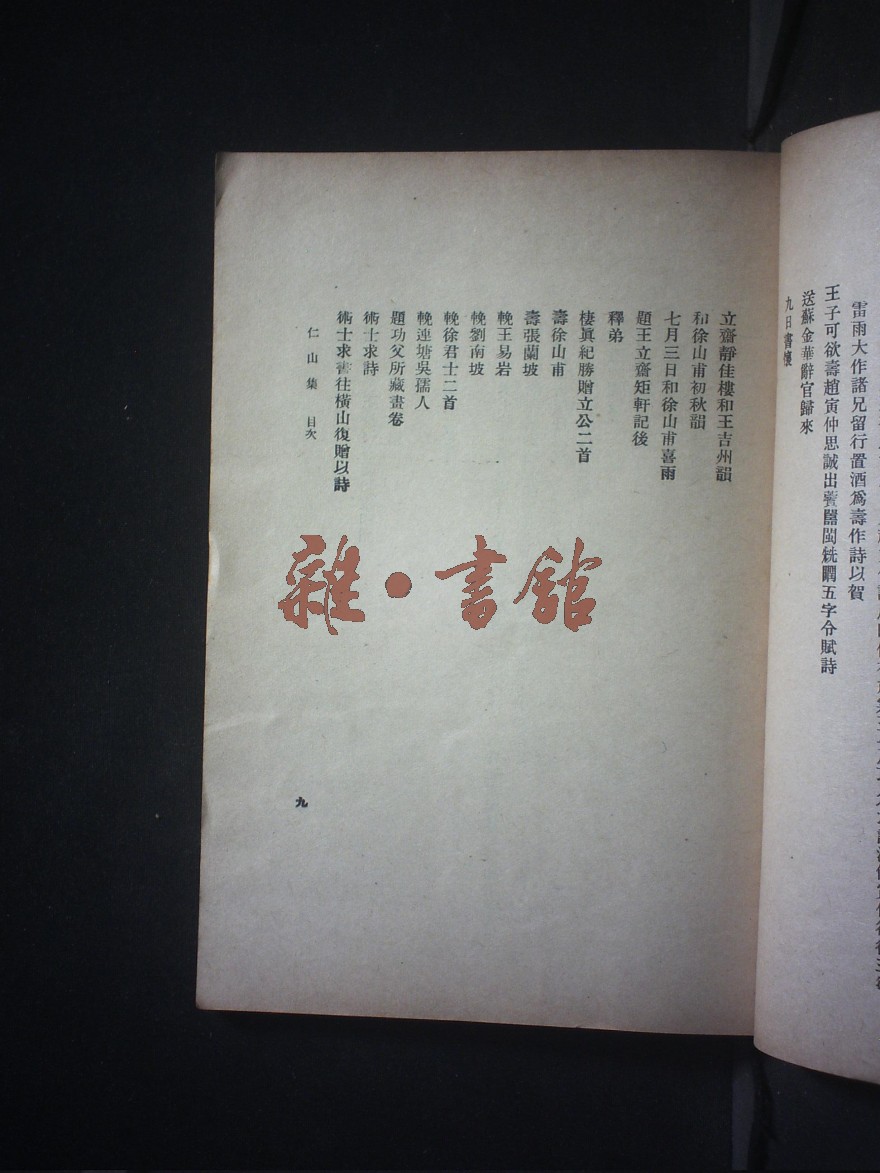 雷雨大作諸兄留行置酒爲壽作詩以賀
王子可欲壽趙寅仲思誠出虀醯閩兟鬬五字令賦詩
送蘇金華辭官歸來
九日書懷
立齋靜佳樓和王吉州韻
和徐山甫初秋韻
七月三日和徐山甫喜雨
題王立齋矩軒記後
釋弟
棲眞紀勝贈立公二首
壽徐山甫
壽張蘭坡
輓王易岩
輓劉南坡
輓徐君士二首
輓連塘吳孺人
題功父所藏畫卷
術士求詩
術士求書往橫山復贈以詩
仁山集 目次
九
雜·書館